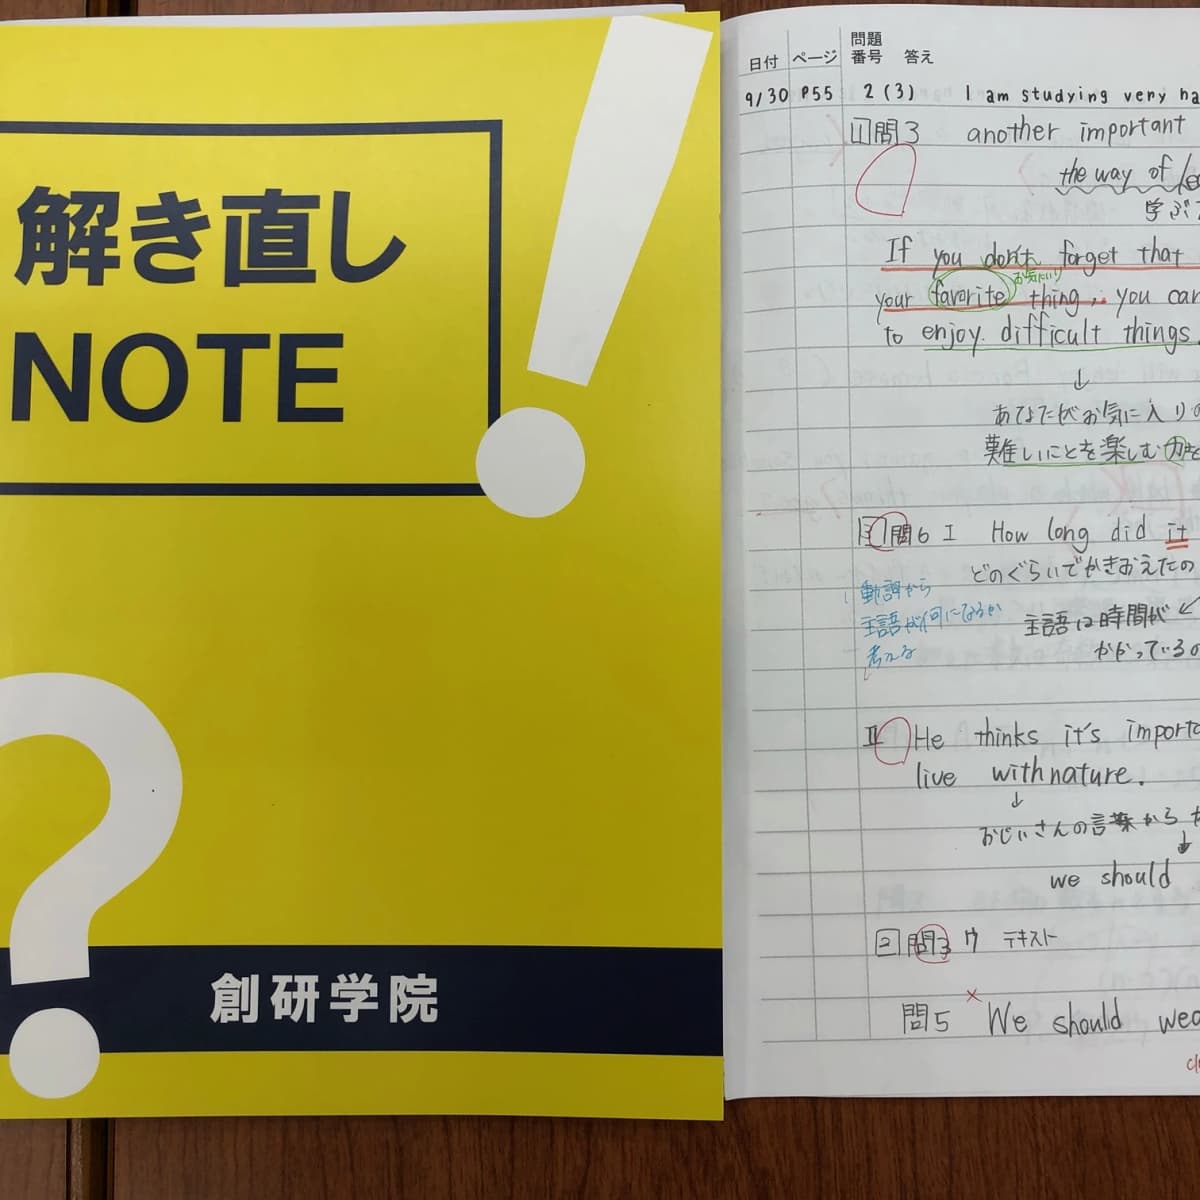 解き直し
NOTE
創研学院
日付 ページ 問題番号 答え
9/30 P55 2(3) I am studying very ha
1 問3 another important
the way of le
学ぶ
If you don't forget that
お気に入り
your favorite thing, you can
to enjoy difficult things.
↓
あなたがお気に入りの
難しいことを楽しむ力を
問6 I How long did it
どのぐらいでかきおえたの
動詞から
主語が何になるか
考える
主語は時間が
かかっているの
II He thinks it's importa
live with nature.
↓
おじいさんの言葉から
we should
2 問3 ウ テキスト
問5 We should wea